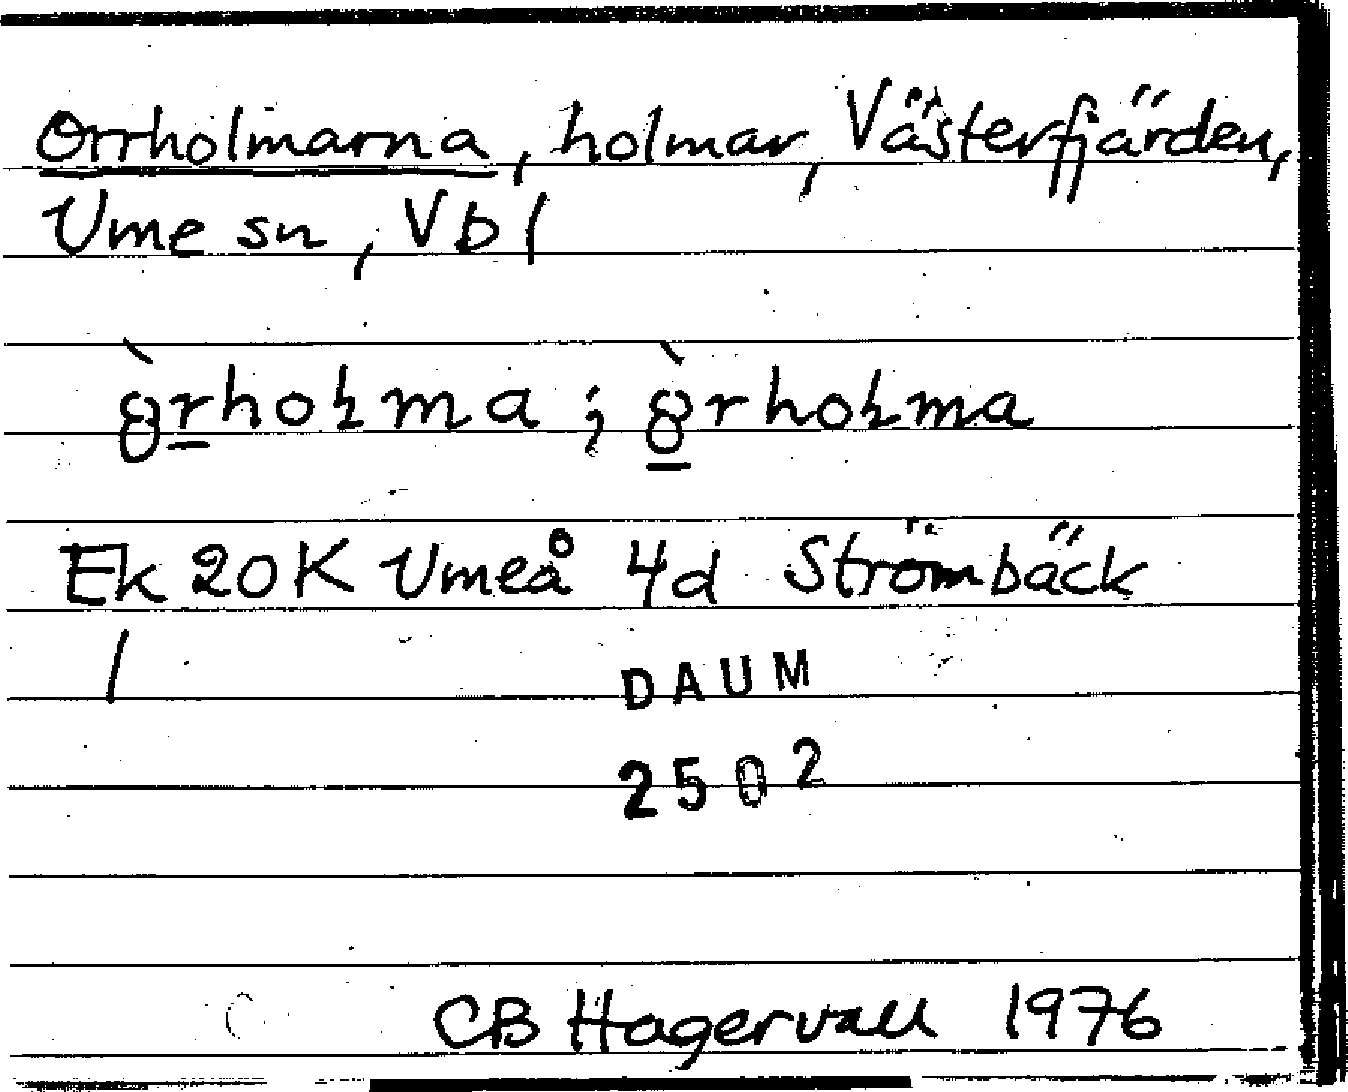 Orrholmarna, holmar, Västerfjärden,
Ume sn, Vbl
Ek 20K Umeå 4d Strömbäck
/
DAUM
2502
CB Hagervall 1976